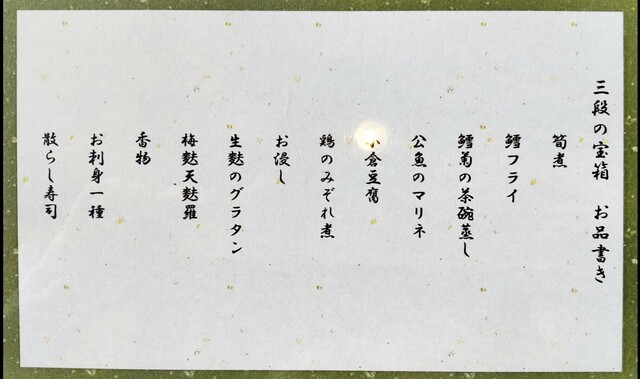 三段の宝箱　お品書き
筍煮
鱈フライ
鱈菊の茶碗蒸し
公魚のマリネ
小倉豆腐
鶏のみぞれ煮
お浸し
生麩のグラタン
梅麩天麩羅
香物
お刺身一種
散らし寿司